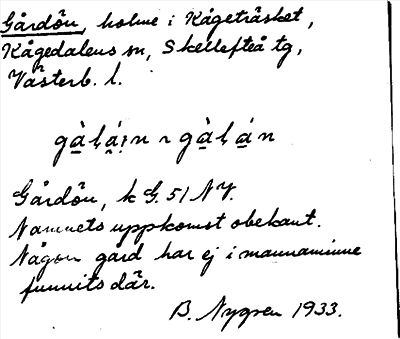 Gårdön, holme i Kågeträsket,
Kågedalens sn, Skellefteå tg,
Västerb. l.
Gårdön, k G. 51 NV.
Namnets uppkomst obekant.
Någon gård har ej i mannaminne
funnits där.
B. Nygren 1933.